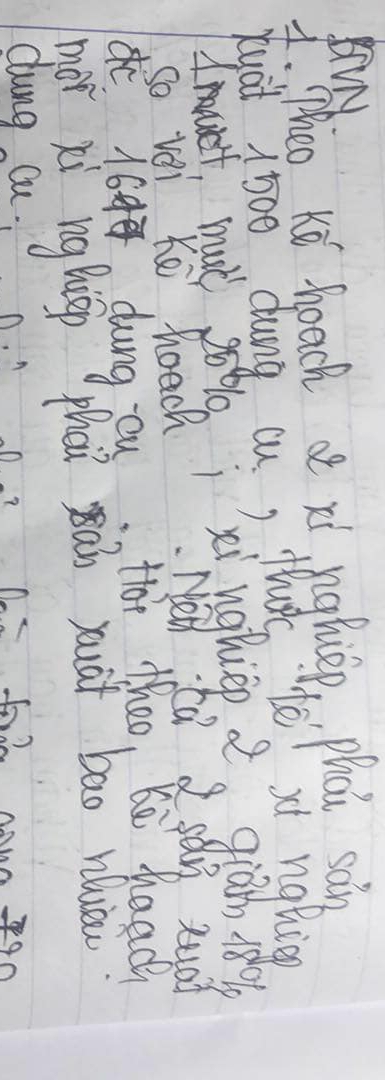 BTVN.
1. Theo kế hoạch 2 xí nghiệp phải sản
xuất 1500 dụng cụ, thực tế xí nghiệp
1 vượt mức 25%; xí nghiệp 2 giảm 18%
so với kế hoạch. Nên cả 2 sản xuất
đc dụng cụ. Hỏi theo kế hoạch
mỗi xí nghiệp phải sản xuất bao nhiêu
dụng cụ.